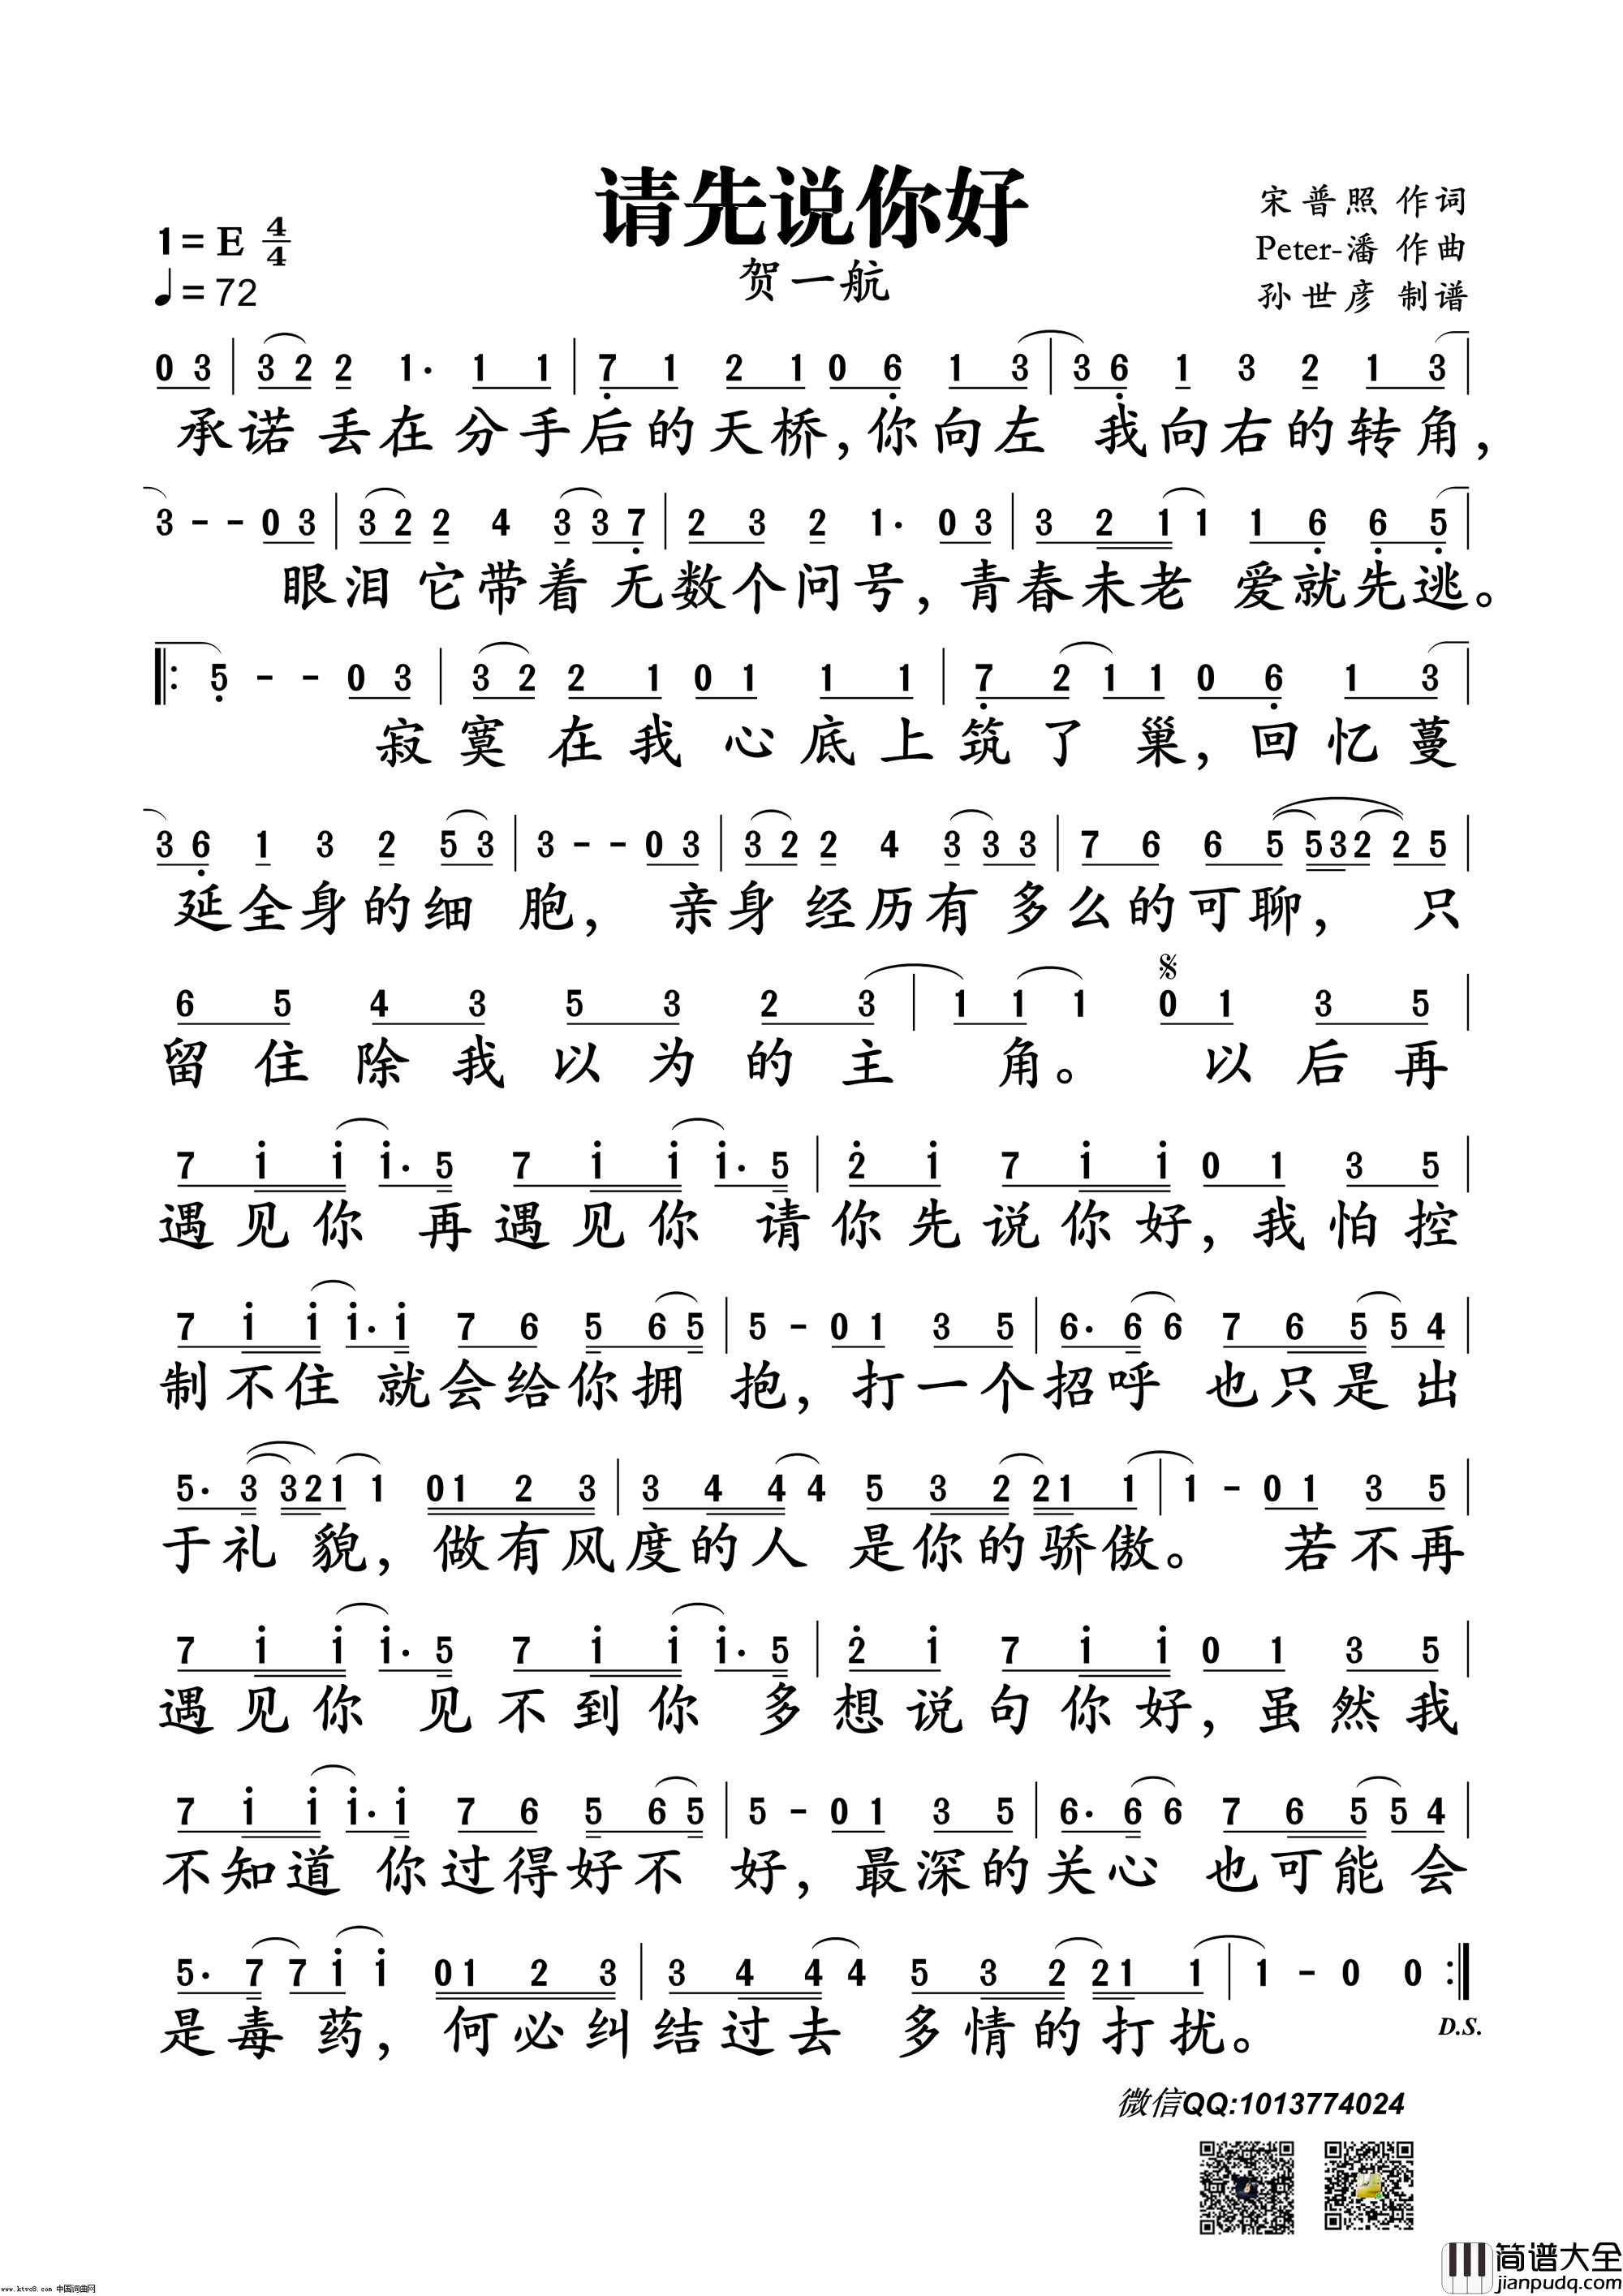 请先说你好
宋普照 作词
1=E 4/4
Peter-潘 作曲
贺一航
♩=72
孙世彦 制谱
0 3 | 3 2 2 1· 1 1 | 7 1 2 1 0 6 1 3 | 3 6 1 3 2 1 3 |
承诺丢在分手后的天桥,你向左 我向右的转角,
3 - - 0 3 | 3 2 2 4 3 3 7 | 2 3 2 1· 0 3 | 3 2 1 1 1 6 6 5 |
眼泪它带着无数个问号,青春未老 爱就先逃。
‖: 5 - - 0 3 | 3 2 2 1 0 1 1 1 | 7 2 1 1 0 6 1 3 |
寂寞在我心底上筑了巢,回忆蔓
3 6 1 3 2 5 3 | 3 - - 0 3 | 3 2 2 4 3 3 3 | 7 6 6 5 5 3 2 2 5 |
延全身的细胞, 亲身经历有多么的可聊, 只
𝄋
6 5 4 3 5 3 2 3 | 1 1 1 0 1 3 5 |
留住除我以为的主 角。 以后再
7 i i i· 5 7 i i i· 5 | 2 i 7 i i 0 1 3 5 |
遇见你 再遇见你 请你先说你好,我怕控
7 i i i· i 7 6 5 6 5 | 5 - 0 1 3 5 | 6· 6 6 7 6 5 5 4 |
制不住 就会给你拥 抱,打一个招呼 也只是出
5· 3 3 2 1 1 0 1 2 3 | 3 4 4 4 5 3 2 2 1 1 | 1 - 0 1 3 5 |
于礼貌,做有风度的人 是你的骄傲。 若不再
7 i i i· 5 7 i i i· 5 | 2 i 7 i i 0 1 3 5 |
遇见你 见不到你 多想说句你好,虽然我
7 i i i· i 7 6 5 6 5 | 5 - 0 1 3 5 | 6· 6 6 7 6 5 5 4 |
不知道 你过得好不 好,最深的关心 也可能会
5· 7 7 i i 0 1 2 3 | 3 4 4 4 5 3 2 2 1 1 | 1 - 0 0 :‖
是毒药,何必纠结过去 多情的打扰。
D.S.
微信QQ:1013774024
简谱大全
jianpudq.com
www.ktvc8.com 中国词曲网